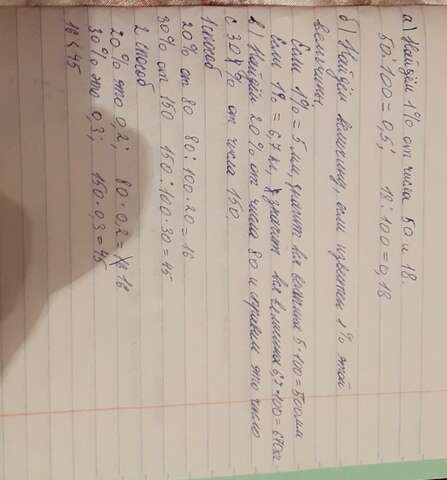 а) Найдём 1% от числа 50 и 18.
50:100=0,5; 18:100=0,18
б) Найдём величину, если известен 1% этой
величины
Если 1% = 5 мм, значит вся величина 5·100=500мм
Если 1% = 6,7 кг, значит вся величина 6,7·100=670кг
в) Найдём 20% от числа 80 и сравним это число
с 30% от числа 150.
1 способ
20% от 80 80:100·20=16
30% от 150 150:100·30=45
2 способ
20% это 0,2; 80·0,2=16
30% это 0,3; 150·0,3=45
16<45